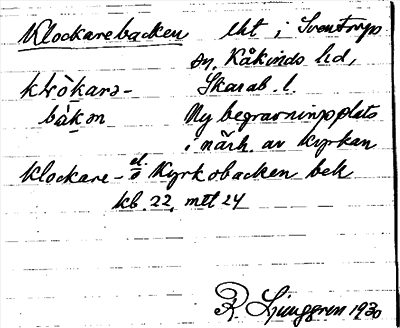 Klockarebacken lht i Sventorps
sn, Kåkinds hd,
klòkara- Skarab. l.
bàkən Ny begravningsplats
i närh. av kyrkan
Klockare- el. Kyrkobacken bek
kb. 22, mtl 24
R Ljunggren 1930